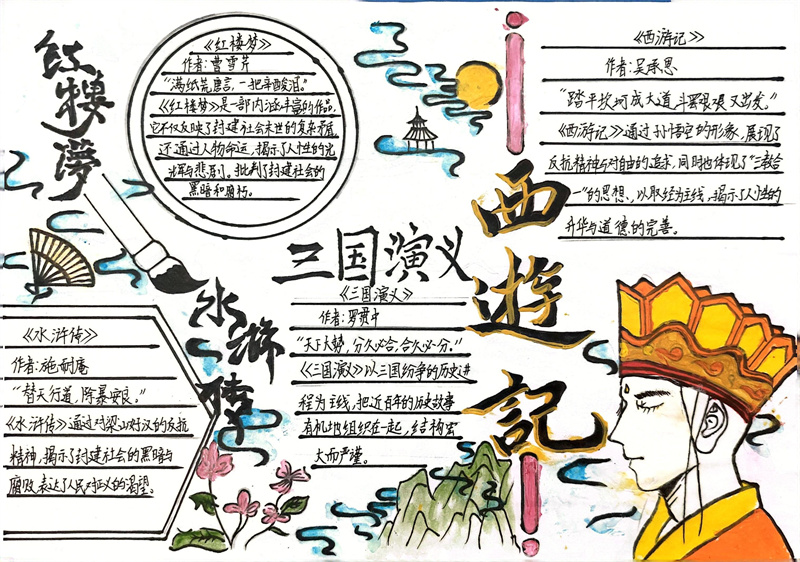 红楼梦
《红楼梦》
作者:曹雪芹
"满纸荒唐言,一把辛酸泪。"
《红楼梦》是一部内涵丰富的作品,
它不仅反映了封建社会末世的复杂矛盾,
还通过人物命运,揭示了人性的光
辉与悲剧。批判了封建社会的
黑暗和腐朽。
西遊記
《西游记》
作者:吴承恩
"踏平坎坷成大道,斗罢艰艰又出发。"
《西游记》通过孙悟空的形象,展现了
反抗精神与对自由的追求,同时也体现了"三教合
一"的思想、以取经为主线,揭示了人性的
升华与道德的完善。
三国演义
《三国演义》
作者:罗贯中
"天下大势,分久必合,合久必分。"
《三国演义》以三国纷争的历史进
程为主线,把近百年的历史故事
有机地组织在一起,结构宏
大而严谨。
水滸傳
《水浒传》
作者:施耐庵
"替天行道,除暴安良。"
《水浒传》通过对梁山好汉的反抗
精神,揭示了封建社会的黑暗与
腐败,表达了人民对正义的渴望。